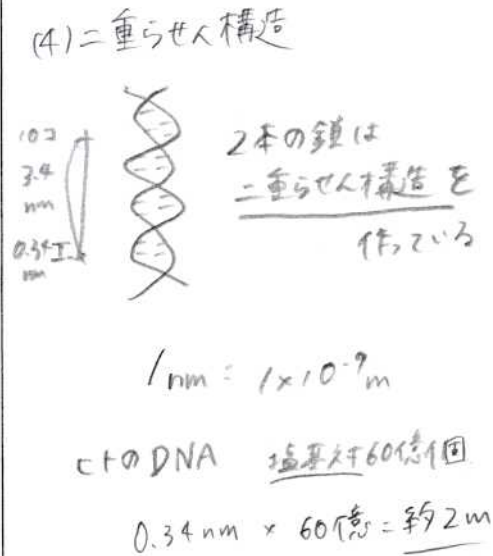 (4)二重らせん構造
10コ
3.4
nm
0.34
nm
2本の鎖は
二重らせん構造を
作っている
1nm = 1×10⁻⁹m
ヒトのDNA 塩基対60億個
0.34nm × 60億 = 約2m